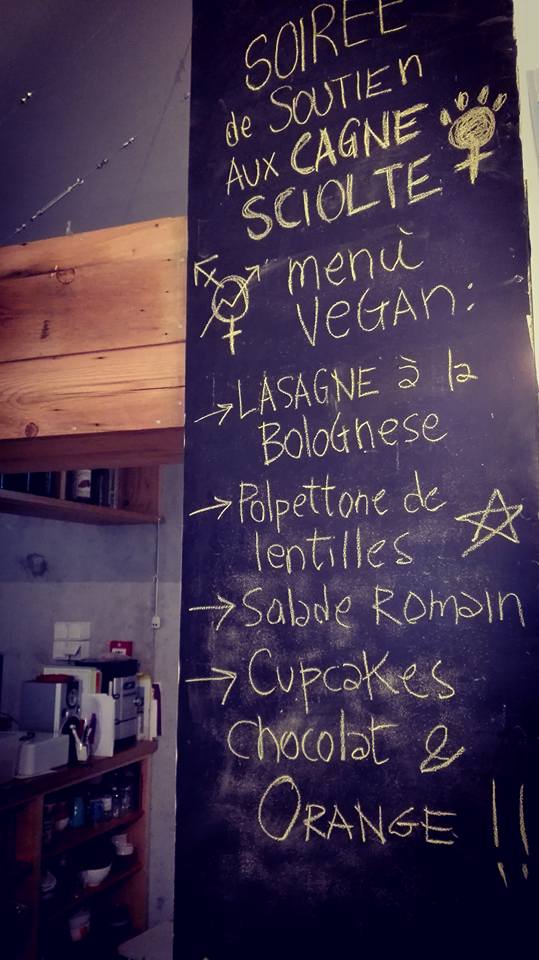 SOIRÉE
de SOUTIEN
AUX CAGNE
SCIOLTE
menù
VEGAN:
→ LASAGNE à la
BOLOGNESE
→ Polpettone de
lentilles
→ Salade Romain
→ Cupcakes
chocolat &
ORANGE !!